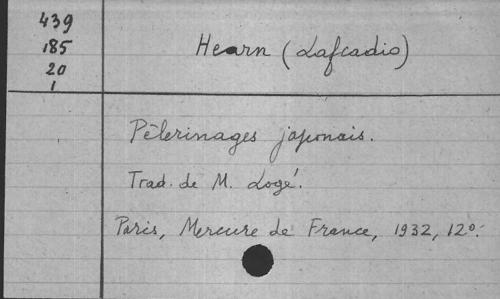 439
185
20
1
Hearn (Lafcadio)
Pèlerinages japonais.
Trad. de M. Logé.
Paris, Mercure de France, 1932, 12º.